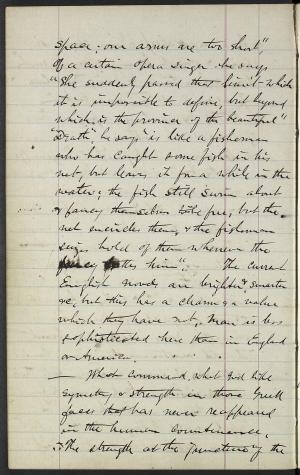 space; our arms are too short"
Of a certain opera singer he says
"She suddenly passed that limit which
it is impossible to define, but beyond
which is the province of the beautiful"
"Death" he says "is like a fisherman
who has caught some fish in his
net, but leaves it for a while in the
water; the fish still swim about
& fancy themselves to be free, but the
net encircles them, & the fisherman
seizes hold of them whenever the
fancy takes him". The current
English novels are brighter, smarter
&c, but this has a charm & a value
which they have not. Man is less
sophisticated here than in England
or America.
— What command, what God like
symmetry & strength in those Greek
faces that has never reappeared
in the human countenance,
The strength at the juncture of the